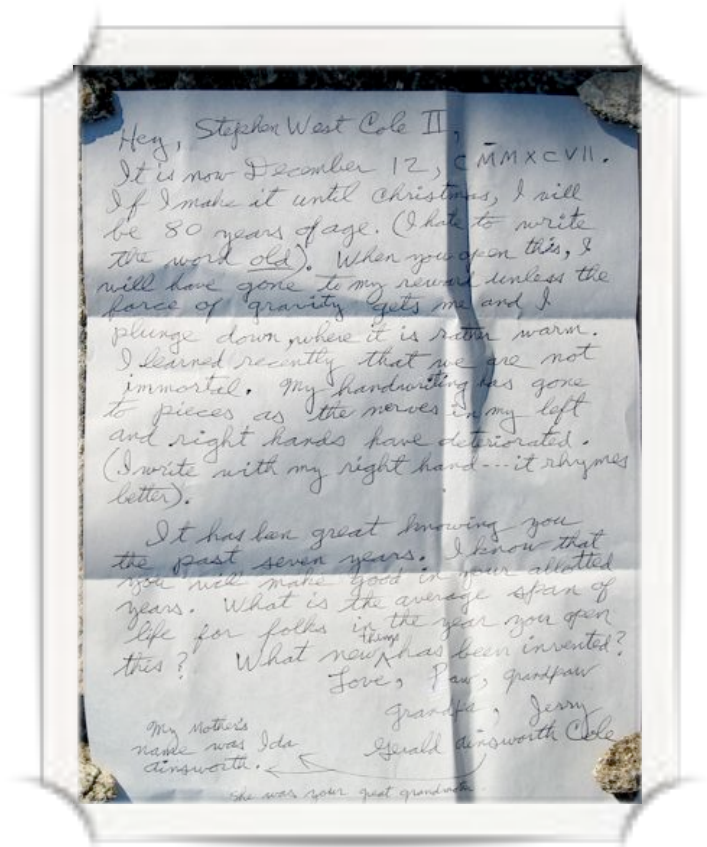 Hey, Stephen West Cole II,
It is now December 12, CMMXCVII.
If I make it until Christmas, I will
be 80 years of age. (I hate to write
the word old). When you open this, I
will have gone to my reward unless the
force of gravity gets me and I
plunge down, where it is rather warm.
I learned recently that we are not
immortal. My handwriting has gone
to pieces as the nerves in my left
and right hands have deteriorated.
(I write with my right hand---it rhymes
better).
It has been great knowing you
the past seven years. I know that
you will make good in your allotted
years. What is the average span of
life for folks in the year you open
this? What new things has been invented?
Love, Paw, grandpaw
grandpa, Jerry
Gerald Ainsworth Cole
My Mother's
name was Ida
Ainsworth.
She was your great grandmother.